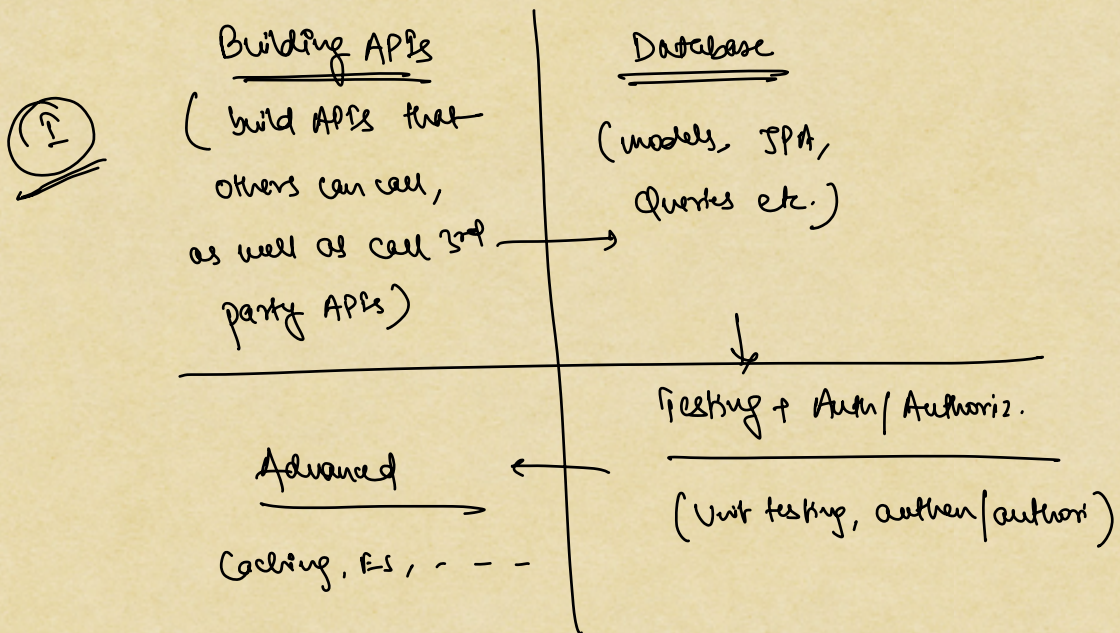 I
Building APIs
( build APIs that
others can call,
as well as call 3rd
party APIs)
Database
(models, JPA,
Queries etc.)
Testing + Auth/Authoriz.
(Unit testing, authen/authori)
Advanced
Caching, ES, - - - -